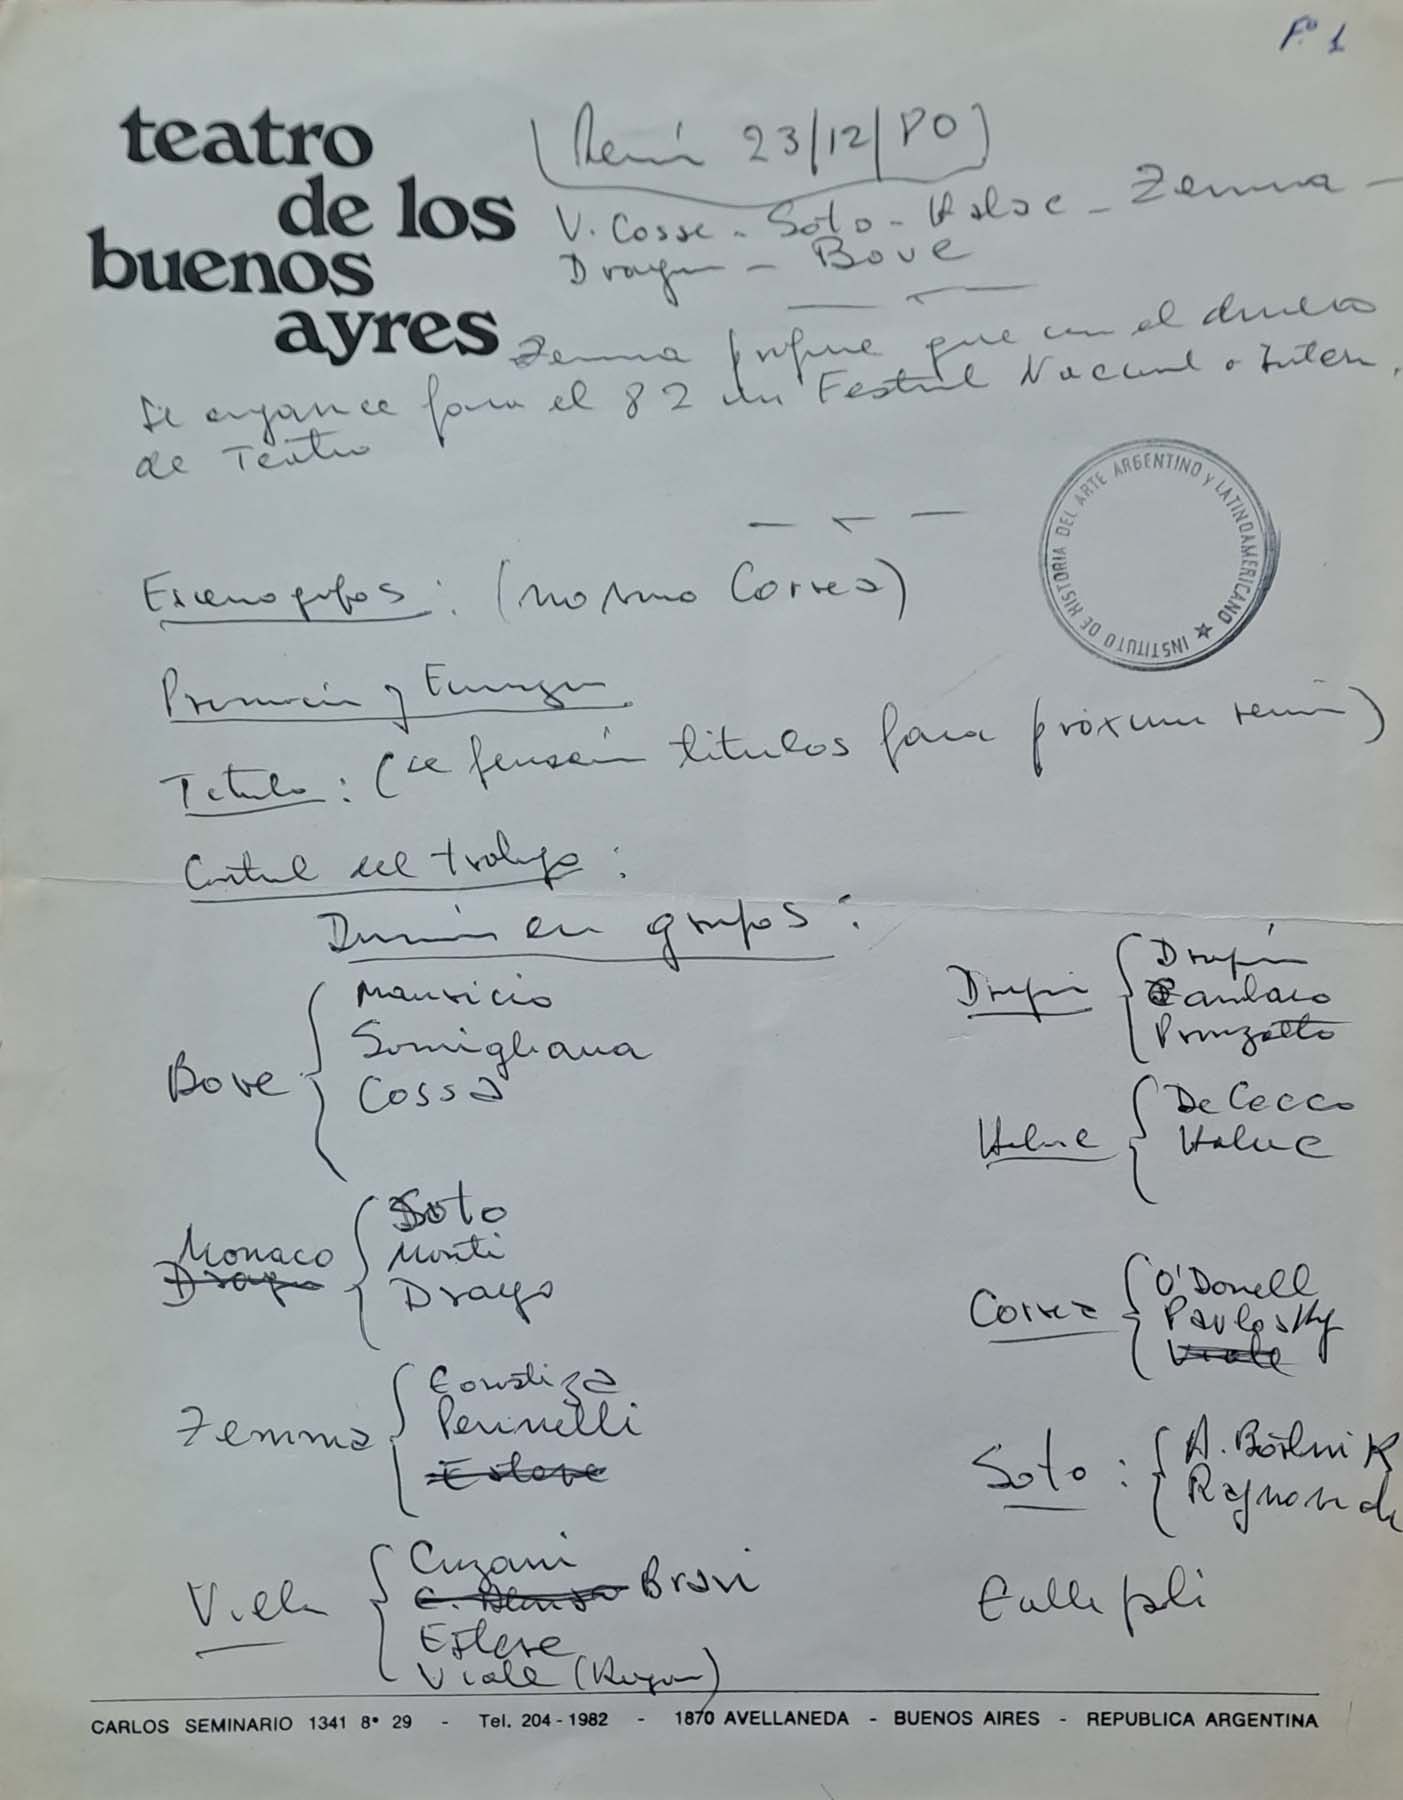 Fº 1
teatro
de los
buenos
ayres
(Reunión 23/12/80)
V. Cosse - Soto - Halac - Zemma -
Dragun - Bove
Zemma propone que con el dinero
se organice para el 82 un Festival Nacional o Intern.
de Teatro
INSTITUTO DE HISTORIA DEL ARTE ARGENTINO y LATINOAMERICANO
Escenografos: (no vino Correa)
Promoción y
Titulo: (se pensarán titulos para próxima reunión)
Control del trabajo:
División en grupos:
Bove { Mauricio
Somigliana
Cossa
Monaco { Soto
Dragun Monti
Drago
Zemma { Goratiza
Perinelli
Esteve
Villa { Cuzani
Bravi
Esteve
Viale (Roger)
Dragún { Dragún
Gambaro
Pronzatto
Halac { De Cecco
Halac
Correa { O'Donell
Pavlosky
Viale
Soto: { A. Bortnik
Raznovich
Gallipoli
CARLOS SEMINARIO 1341 8º 29 - Tel. 204-1982 - 1870 AVELLANEDA - BUENOS AIRES - REPUBLICA ARGENTINA